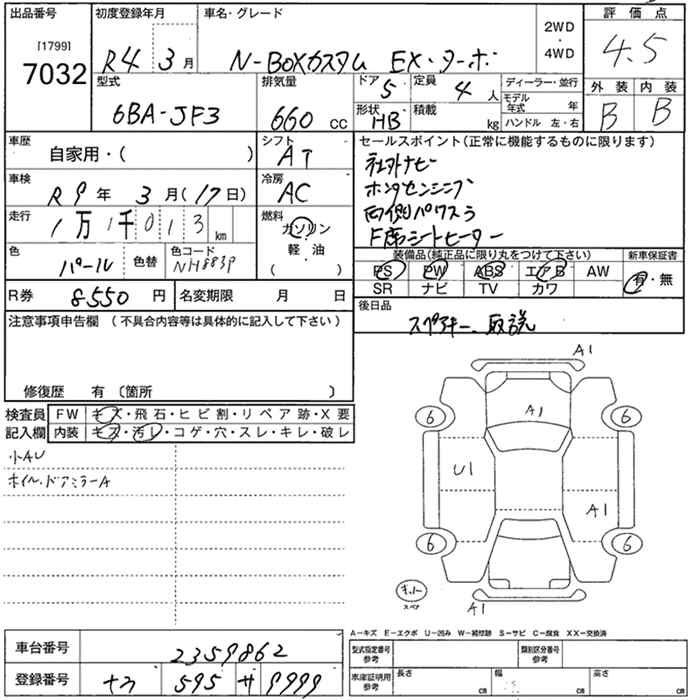 出品番号 初度登録年月 車名・グレード 2WD ・ 4WD 評価点
[1799]
7032 R4 3月 N-BOXカスタム EX・ターボ 4.5
型式 排気量 ドア 定員 ディーラー・並行 外装 内装
6BA-JF3 660 CC 5 4人 モデル年式 年 B B
形状 HB 積載 kg ハンドル 左・右
車歴 シフト セールスポイント(正常に機能するものに限ります)
自家用・( ) AT 社外ナビ
車検 冷房 ホンダセンシング
R9年 3月(17日) AC 両側パワスラ
走行 燃料 F席シートヒーター
1万1千013km ガソリン
色 色替 色コード 軽・油 装備品(純正品に限り丸をつけて下さい) 新車保証書
パール NH883P ( ) PS PW ABS エアB AW 有・無
SR ナビ TV カワ
R券 8550円 名変期限 月 日 後日品
スペアキー、取説
注意事項申告欄(不具合内容等は具体的に記入して下さい)
修復歴 有〔箇所 〕
検査員 FW キズ・飛石・ヒビ割・リペア跡・X要
記入欄 内装 キズ・汚レ・コゲ・穴・スレ・キレ・破レ
小AU
ホイル・ドアミラーA
A1
6 A1 6
U1
A1
6 6
スペア
A1
A−キズ E−エクボ U−凹み W−補修跡 S−サビ C−腐食 XX−交換済
車台番号 2359862 型式指定番号 参考 類別区分番号 参考
登録番号 595 サ 9999 車庫証明用 参考 長さ cm 幅 cm 高さ cm